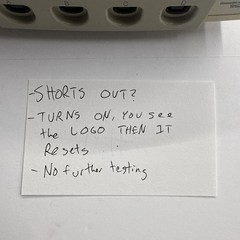 -SHORTS OUT?
-TURNS ON, YOU see
the LOGO THEN IT
Resets
- No further testing